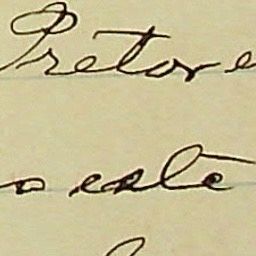 Pretore
o este